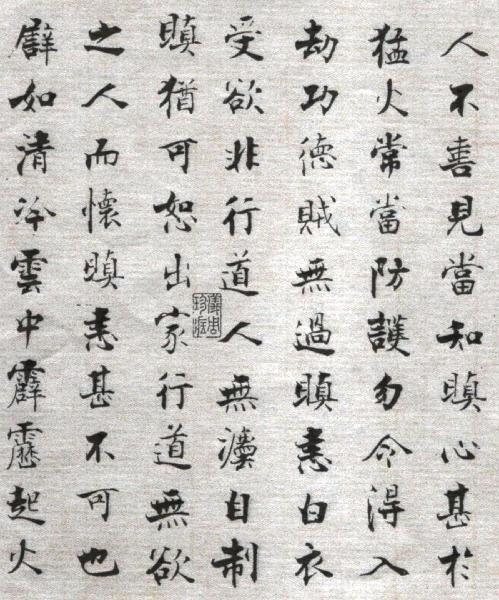 人不喜見當知瞋心甚於
猛火常當防護勿令得入
劫功德賊無過瞋恚白衣
受欲非行道人無灋自制
瞋猶可恕出家行道無欲
之人而懷瞋恚甚不可也
譬如清冷雲中霹靂起火
儀周珍藏